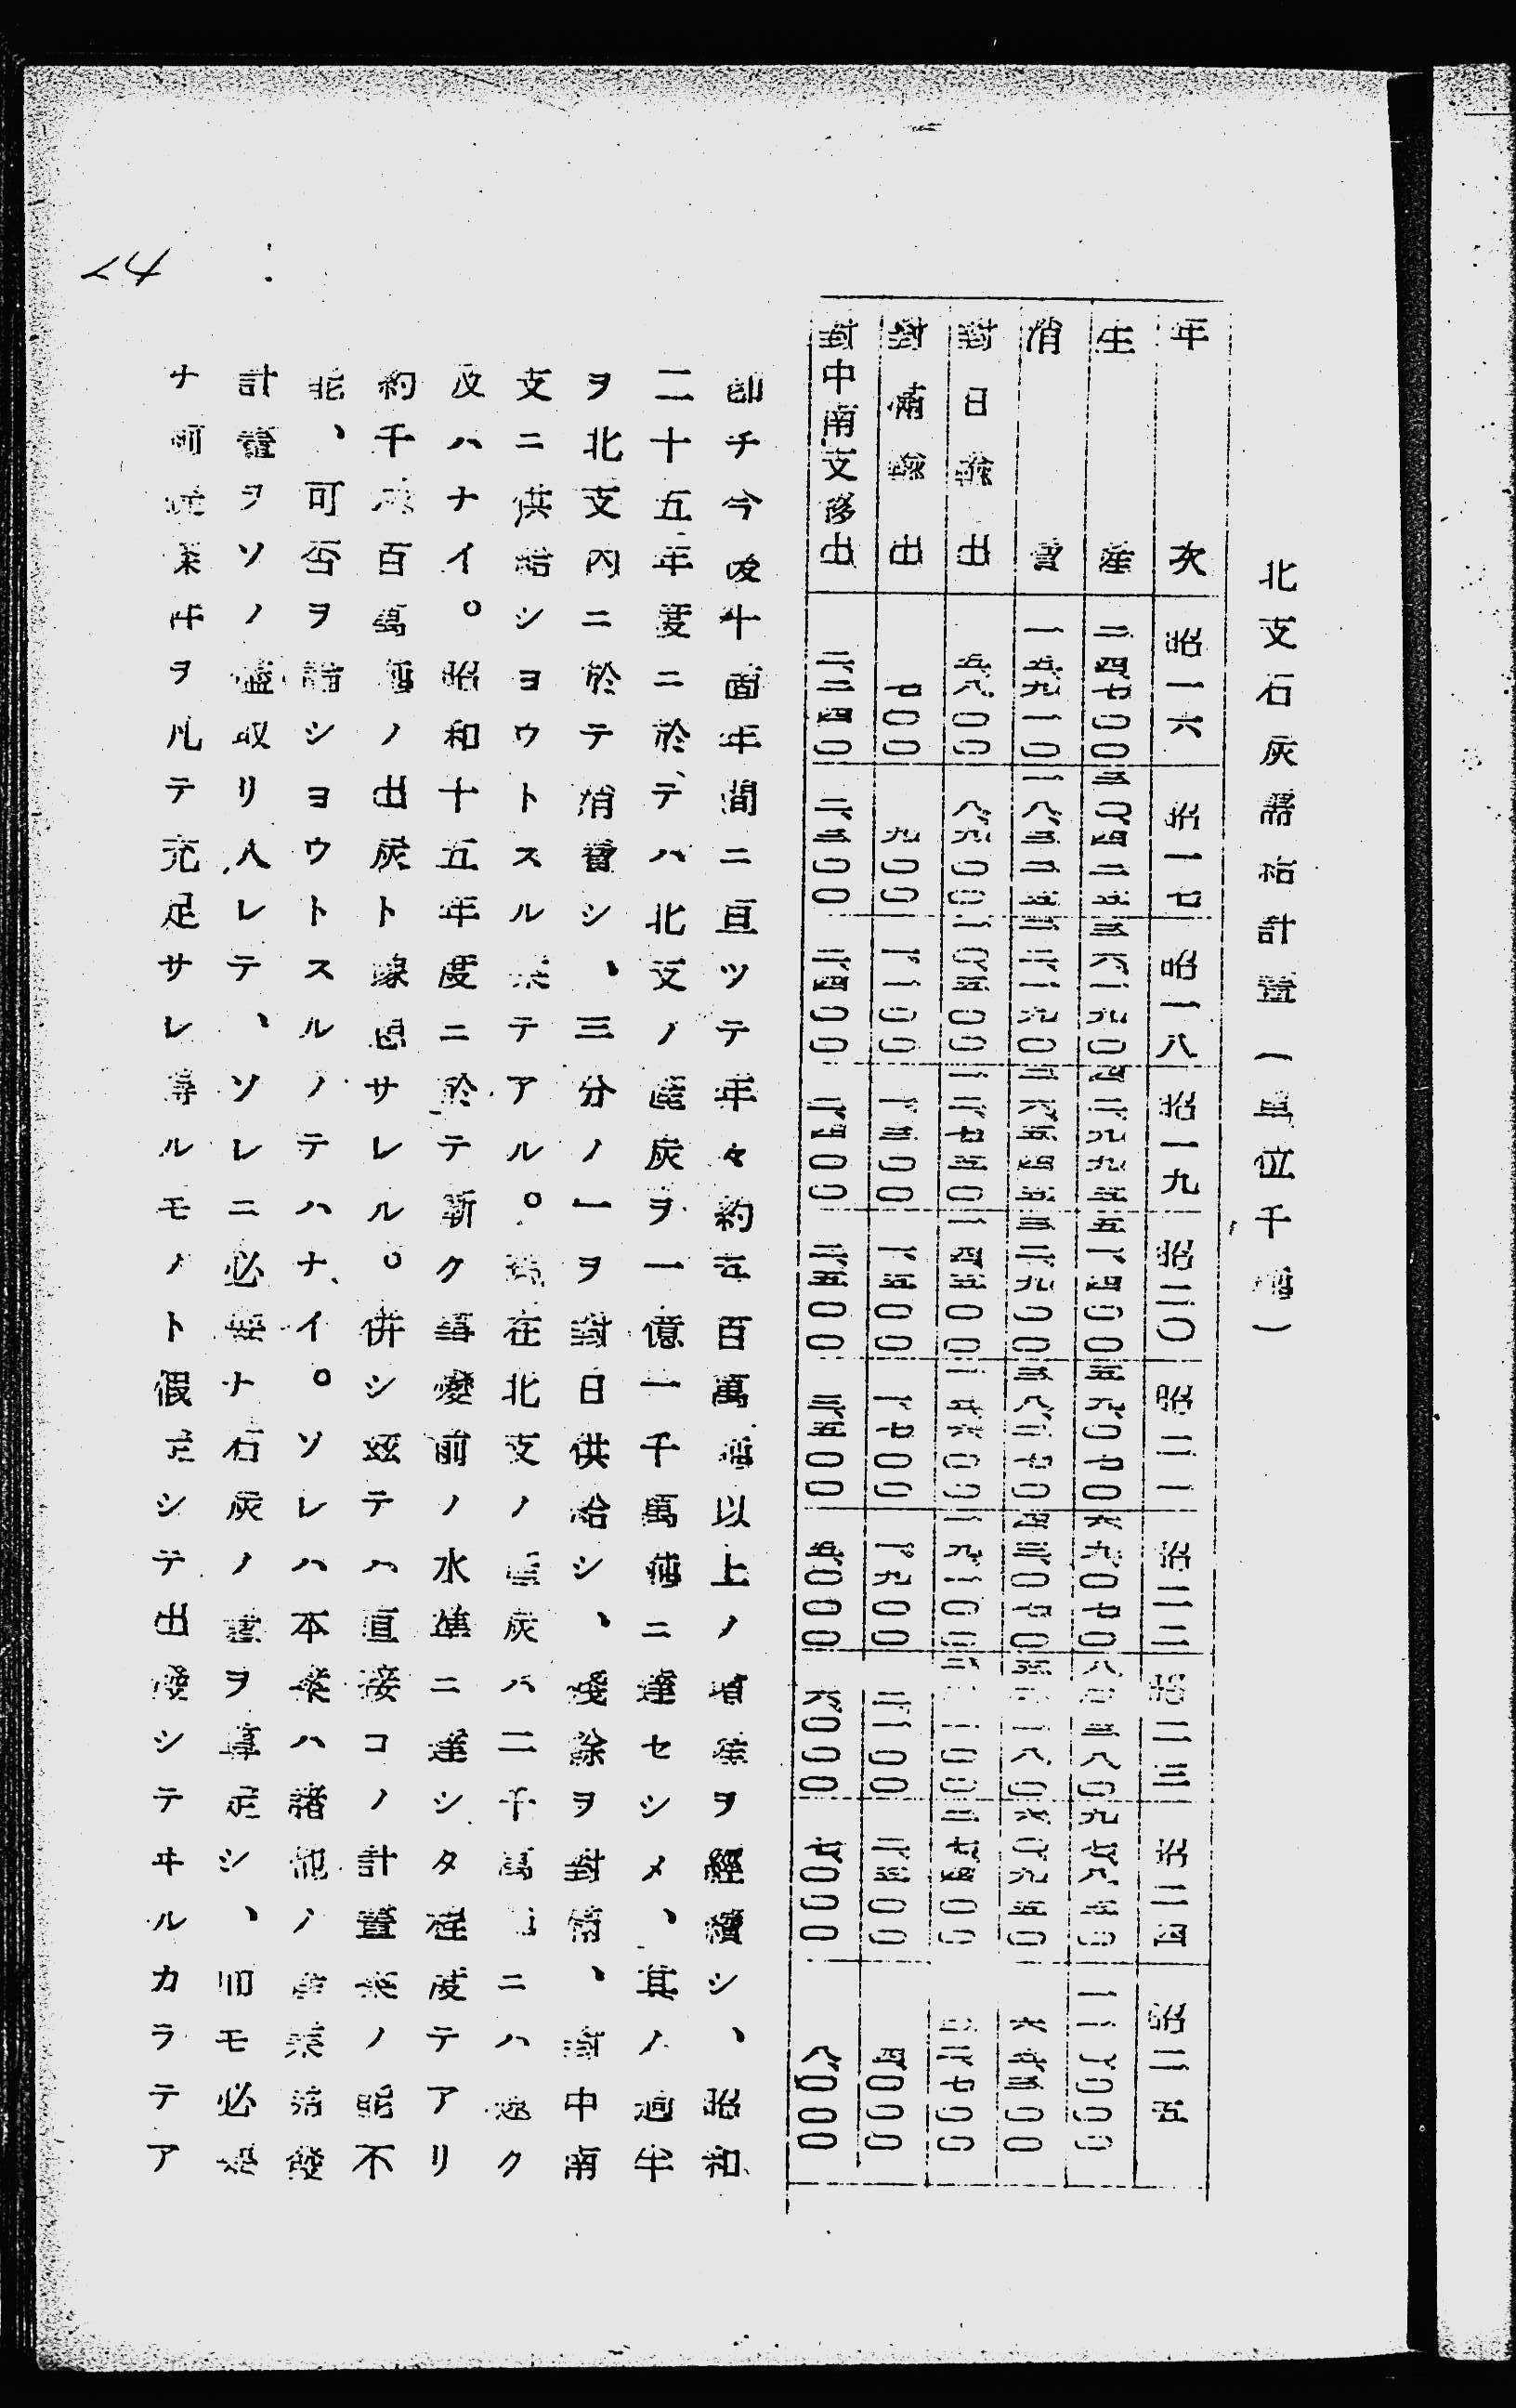 北支石炭需給計畫(單位千瓲)
年次 昭一六 昭一七 昭一八 昭一九 昭二〇 昭二一 昭二二 昭二三 昭二四 昭二五
生産 二四、七〇〇 三〇、四二五 三六、一九〇 四二、九九五 五一、四〇〇 五九、〇七〇 六九、〇七〇 八
消費 一五、九一〇 一八、三二五 二一、一九〇 二六、五四五 三二、九〇〇 三八、二七〇 四三、〇七〇 六〇、九五〇
對日輸出 五、八〇〇 八、九〇〇 一〇、五〇〇 一二、七五〇 一四、五〇〇 一五、六〇〇 一九、一〇〇 二七、四〇〇
對滿輸出 七〇〇 九〇〇 一、一〇〇 一、三〇〇 一、五〇〇 一、七〇〇 一、九〇〇 二、一〇〇 二、五〇〇 四、〇〇〇
對中南支移出 二、二四〇 二、三〇〇 二、四〇〇 二、四〇〇 二、五〇〇 三、五〇〇 五、〇〇〇 六、〇〇〇 七、〇〇〇 八、〇〇〇
即チ今後十箇年間ニ亘ツテ年々約 百萬瓲以上ノ增産ヲ經續シ、昭和
二十五年度ニ於テハ北支ノ産炭ヲ一億一千萬瓲ニ達セシメ、其ノ過半
ヲ北支内ニ於テ消費シ、三分ノ一ヲ對日供給シ、殘餘ヲ對滿、對中南
支ニ供給シヨウトスル案テアル。現在北支ノ産炭ハ二千萬瓲ニハ遠ク
及ハナイ。昭和十五年度ニ於テ漸ク事變前ノ水準ニ達シタ程度テアリ
約千 百萬瓲ノ出炭ト豫想サレル。併シ玆テハ直接コノ計畫案ノ能不
能、可否ヲ論シヨウトスルノテハナイ。ソレハ本案ハ諸他ノ産業開發
計畫ヲソノ儘取リ入レテ、ソレニ必要ナ石炭ノ量ヲ算定シ、而モ必要
ナ前提條件ヲ凡テ充足サレ得ルモノト假定シテ出發シテヰルカラテア
24